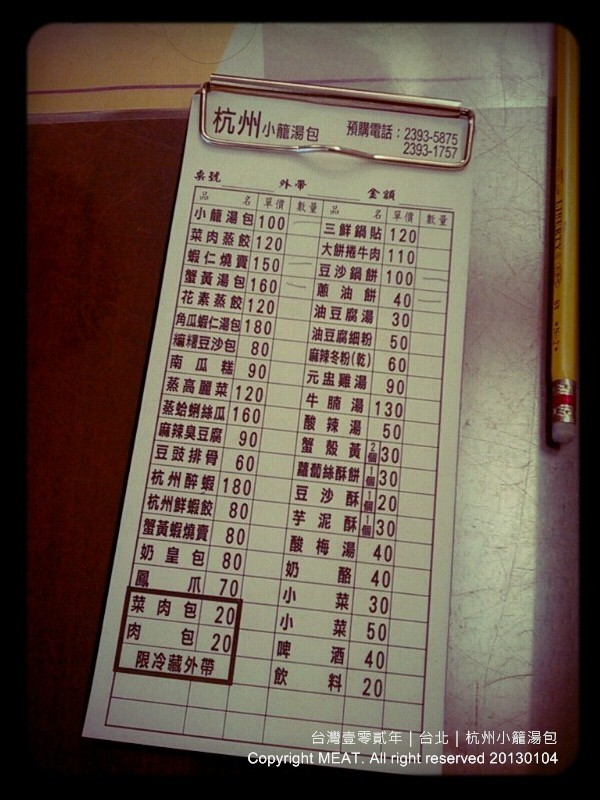 杭州小籠湯包
預購電話：2393-5875
2393-1757
桌號 外帶 金額
品名 單價 數量 品名 單價 數量
小籠湯包 100
菜肉蒸餃 120
蝦仁燒賣 150 一
蟹黃湯包 160 一
花素蒸餃 120
角瓜蝦仁湯包 180
糯糬豆沙包 80
南瓜糕 90
蒸高麗菜 120
蒸蛤蜊絲瓜 160
麻辣臭豆腐 90
豆豉排骨 60
杭州醉蝦 180
杭州鮮蝦餃 80
蟹黃蝦燒賣 80
奶皇包 80
鳳爪 70
菜肉包 20
肉包 20
限冷藏外帶
三鮮鍋貼 120
大餅捲牛肉 110
豆沙鍋餅 100 一
蔥油餅 40 一
油豆腐湯 30
油豆腐細粉 50
麻辣冬粉(乾) 60
元盅雞湯 90
牛腩湯 130
酸辣湯 50
蟹殼黃 2個 30
蘿蔔絲酥餅 1個 30
豆沙酥 1個 20
芋泥酥 1個 30
酸梅湯 40
奶酪 40
小菜 30
小菜 50
啤酒 40
飲料 20
台灣壹零貳年｜台北｜杭州小籠湯包
Copyright MEAT. All right reserved 20130104